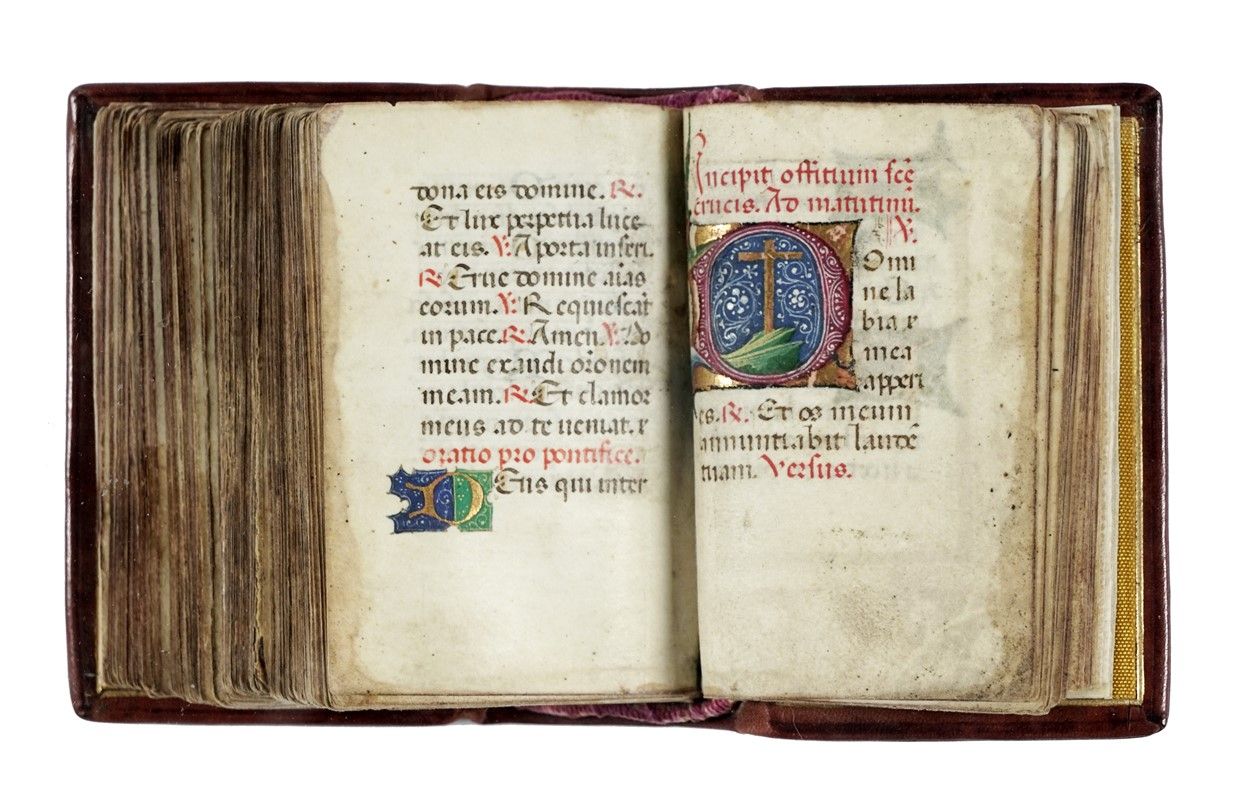 dona eis domine. R.
Et lux perpetua luce
at eis. V. A porta inferi.
R. Erue domine aīas
eorum. V. Requiescāt
in pace. R. Amen. V. Do
mine exaudi orōnem
meam. R. Et clamor
meus ad te ueniat.
oratio pro pontifice.
DEus qui inter
Incipit offitium scē
crucis. Ad matutinū.
V.
Omi
ne la
bia
mea
apperi
es. R. Et os meum
annuntiabit laudē
tuam. Versus.